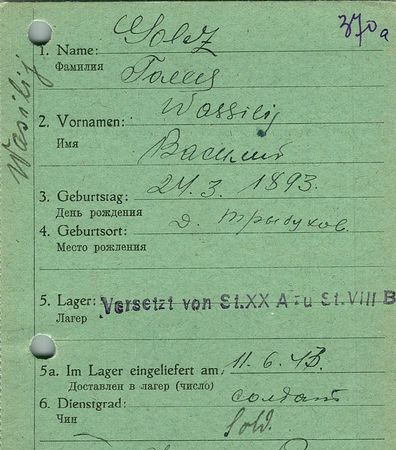 370a
Wassilij
1. Name: Golez
Фамилия Голец
2. Vornamen: Wassilij
Имя Василий
3. Geburtstag: 24.3.1893.
День рождения
4. Geburtsort: д. Трыбухов.
Место рождения
5. Lager: Versetzt von St.XX A zu St.VIII B
Лагер
5a. Im Lager eingeliefert am, 11.6.43.
Доставлен в лагер (число)
6. Dienstgrad: солдат
Чин Sold.